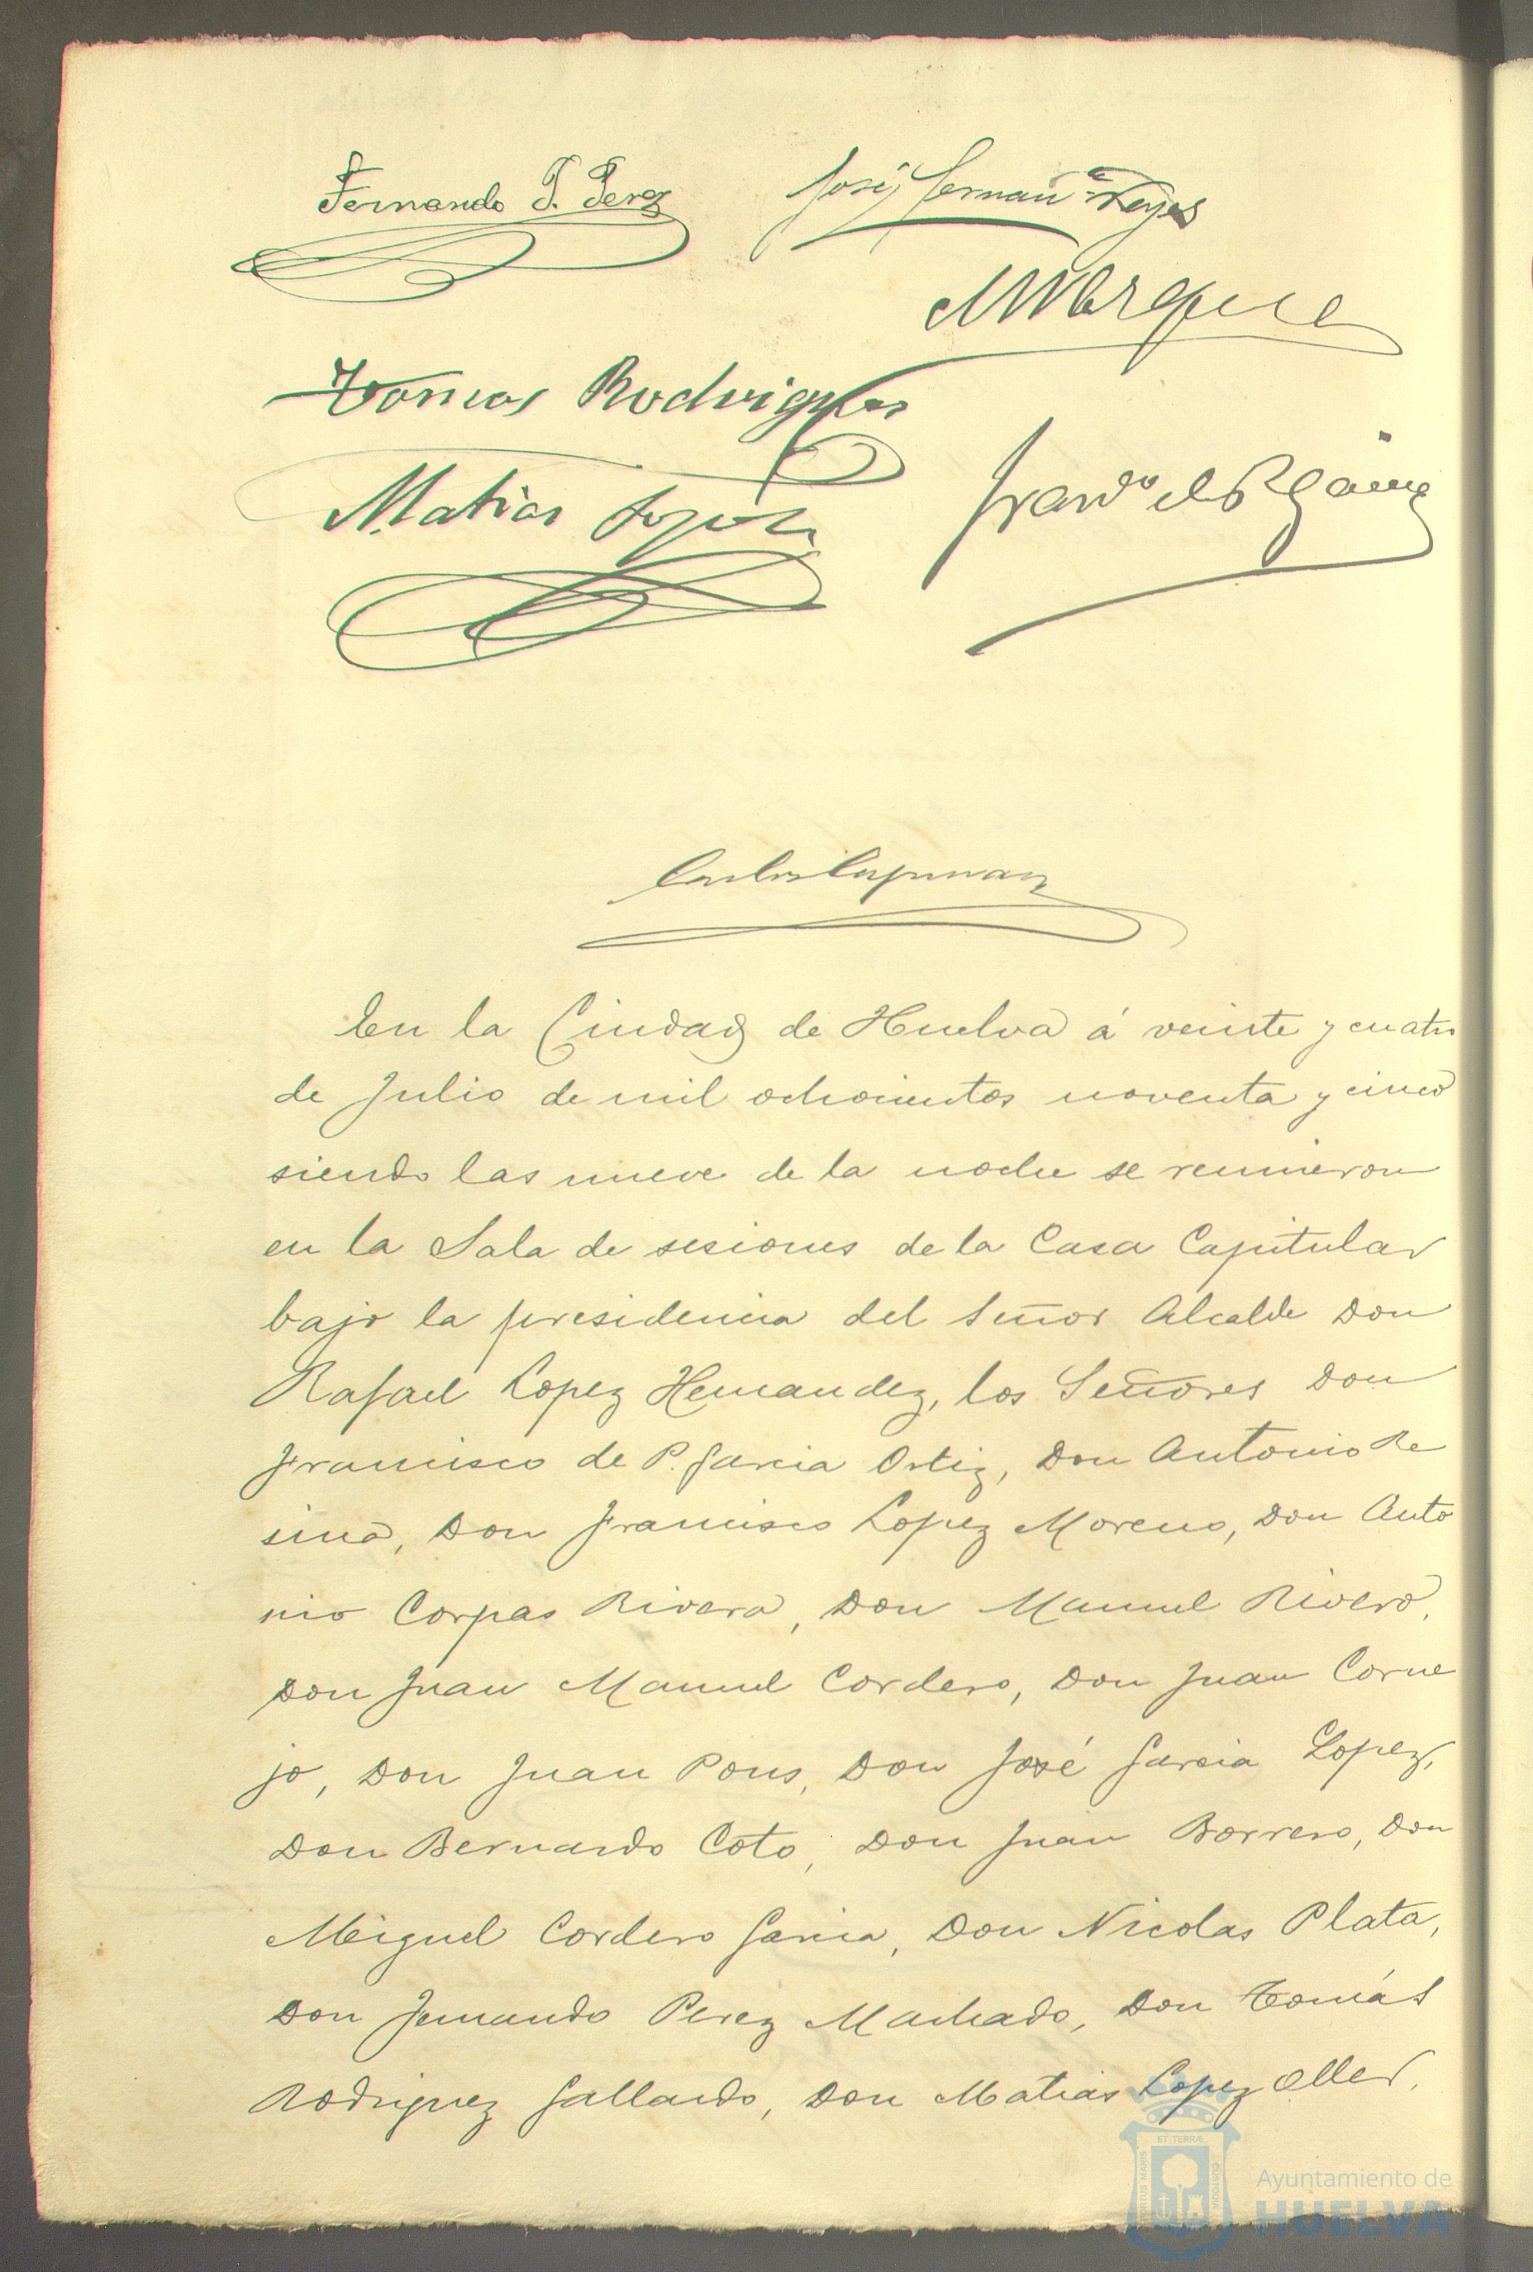 Fernando P. Perez
José Fernan Reyes
Tomas Rodriguez
Matias Lopez
En la Ciudad de Huelva á veinte y cuatro
de Julio de mil ochocientos noventa y cinco
siendo las nueve de la noche se reunieron
en la Sala de sesiones de la Casa Capitular
bajo la presidencia del Señor Alcalde Don
Rafael Lopez Hernandez, los Señores Don
Francisco de P. Garcia Ortiz, Don Antonio Re
sina, Don Francisco Lopez Moreno, Don Anto
nio Corpas Rivera, Don Manuel Rivero,
Don Juan Manuel Cordero, Don Juan Corne
jo, Don Juan Pons, Don José Garcia Lopez,
Don Bernardo Coto, Don Juan Borrero, Don
Miguel Cordero Garcia, Don Nicolas Plata,
Don Fernando Perez Machado, Don Tomás
Rodriguez Gallardo, Don Matias Lopez Oller,
PORTUS MARIS ET TERRÆ CUSTODIA
Ayuntamiento de
HUELVA